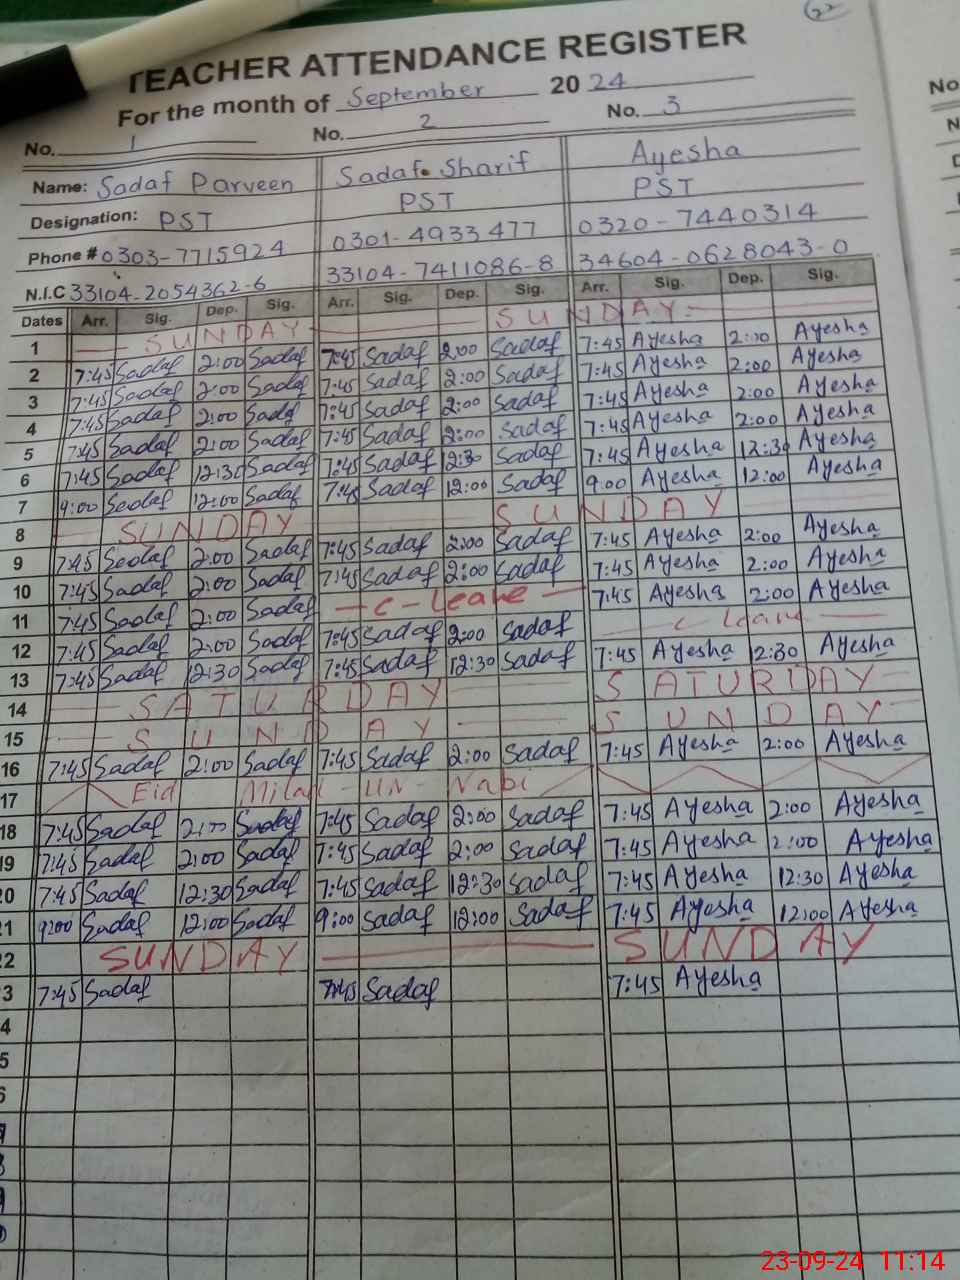 22
TEACHER ATTENDANCE REGISTER
For the month of September 2024
No. 1 No. 2 No. 3
Name: Sadaf Parveen Sadaf Sharif Ayesha
Designation: PST PST PST
Phone # 0303-7715924 0301-4933477 0320-7440314
N.I.C 33104-2054362-6 33104-7411086-8 34604-0628043-0
Dates Arr. Sig. Dep. Sig. Arr. Sig. Dep. Sig. Arr. Sig. Dep. Sig.
1 SUNDAY SUNDAY
2 7:45 Sadaf 2:00 Sadaf 7:45 Sadaf 2:00 Sadaf 7:45 Ayesha 2:00 Ayesha
3 7:45 Sadaf 2:00 Sadaf 7:45 Sadaf 2:00 Sadaf 7:45 Ayesha 2:00 Ayesha
4 7:45 Sadaf 2:00 Sadaf 7:45 Sadaf 2:00 Sadaf 7:45 Ayesha 2:00 Ayesha
5 7:45 Sadaf 2:00 Sadaf 7:45 Sadaf 2:00 Sadaf 7:45 Ayesha 2:00 Ayesha
6 7:45 Sadaf 12:30 Sadaf 7:45 Sadaf 12:30 Sadaf 7:45 Ayesha 12:30 Ayesha
7 9:00 Sadaf 12:00 Sadaf 7:45 Sadaf 12:00 Sadaf 9:00 Ayesha 12:00 Ayesha
8 SUNDAY SUNDAY
9 7:45 Sadaf 2:00 Sadaf 7:45 Sadaf 2:00 Sadaf 7:45 Ayesha 2:00 Ayesha
10 7:45 Sadaf 2:00 Sadaf 7:45 Sadaf 2:00 Sadaf 7:45 Ayesha 2:00 Ayesha
11 7:45 Sadaf 2:00 Sadaf C-Leave 7:45 Ayesha 2:00 Ayesha
12 7:45 Sadaf 2:00 Sadaf 7:45 Sadaf 2:00 Sadaf C Leave
13 7:45 Sadaf 12:30 Sadaf 7:45 Sadaf 12:30 Sadaf 7:45 Ayesha 12:30 Ayesha
14 SATURDAY SATURDAY
15 SUNDAY SUNDAY
16 7:45 Sadaf 2:00 Sadaf 7:45 Sadaf 2:00 Sadaf 7:45 Ayesha 2:00 Ayesha
17 Eid Milad-un-Nabi
18 7:45 Sadaf 2:00 Sadaf 7:45 Sadaf 2:00 Sadaf 7:45 Ayesha 2:00 Ayesha
19 7:45 Sadaf 2:00 Sadaf 7:45 Sadaf 2:00 Sadaf 7:45 Ayesha 2:00 Ayesha
20 7:45 Sadaf 12:30 Sadaf 7:45 Sadaf 12:30 Sadaf 7:45 Ayesha 12:30 Ayesha
1 9:00 Sadaf 12:00 Sadaf 9:00 Sadaf 12:00 Sadaf 7:45 Ayesha 12:00 Ayesha
2 SUNDAY SUNDAY
3 7:45 Sadaf 7:45 Sadaf 7:45 Ayesha
4
5
6
7
8
9
0
No
23-09-24 11:14